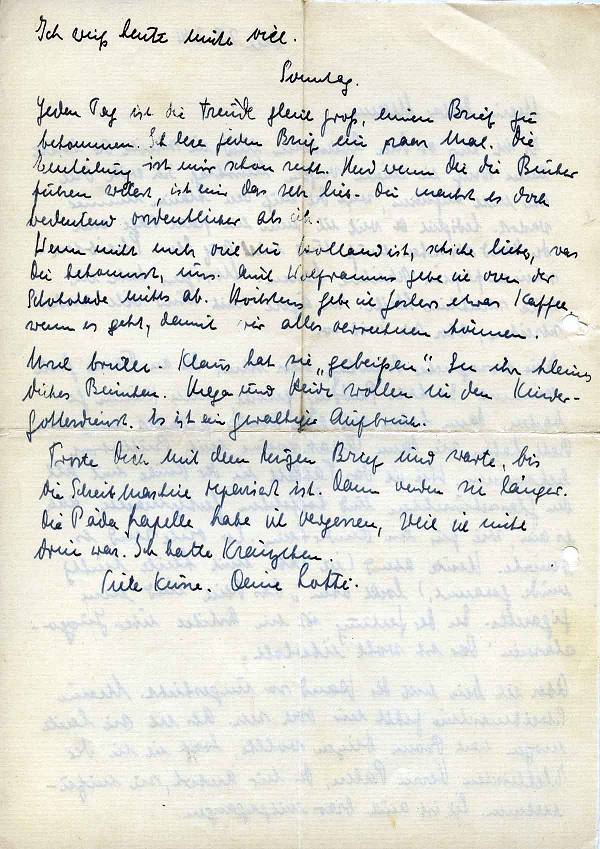 Ich weiß heute nicht viel.
Sonntag.
Jeden Tag ist die Freude gleich groß, einen Brief zu
bekommen. Ich lese jeden Brief ein paar Mal. Die
Einteilung ist mir schon recht. Und wenn Du die Bücher
führen willst, ist mir das sehr lieb. Du machst es doch
bedeutend ordentlicher als ich.
Wenn nicht mehr viel in Holland ist, schicke lieber, was
Du bekommst, uns. Mit Wolframms gebe ich von der
Schokolade nichts ab. Höchstens gebe ich etwas Kaffee,
wenn es geht, damit wir alles verrechnen können.
Ursel brüllt. Klaus hat sie „gebeißen". In ihr kleines
dickes Beinchen. Helga und Heidi wollen in den Kinder-
gottesdienst. Es ist ein gewaltiger Aufbruch.
Tröste Dich mit dem Brief und warte, bis
die Schreibmaschine repariert ist. Dann werden sie länger.
Die habe ich vergessen, weil ich nicht
drin war. Ich hatte Kränzchen.
Viele Küsse. Deine Lotti.